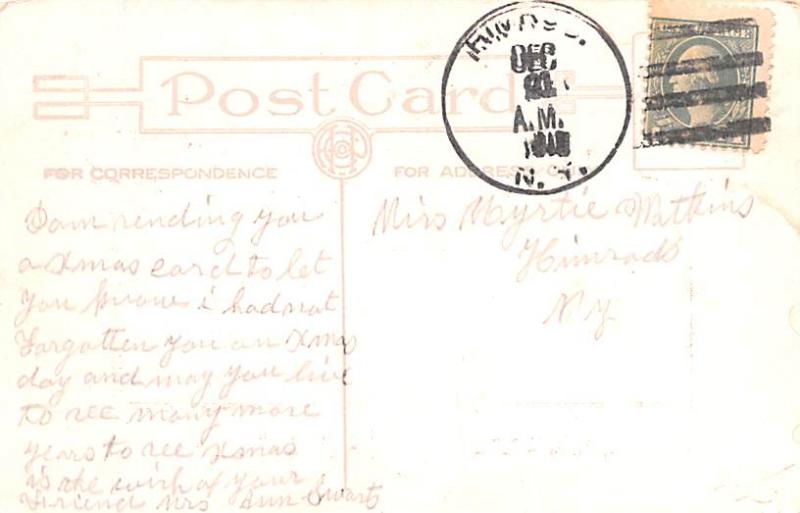 Post Card
FOR CORRESPONDENCE
FOR ADDRESS
DEC
20
A.M.
N. Y.
I am sending you
a Xmas card to let
you know i had not
Forgotten you on Xmas
day and may you live
to see many more
years to see Xmas
is the wish of your
Friend Mrs Ann Swarts
Miss Myrtie Watkins
Himrods
N y